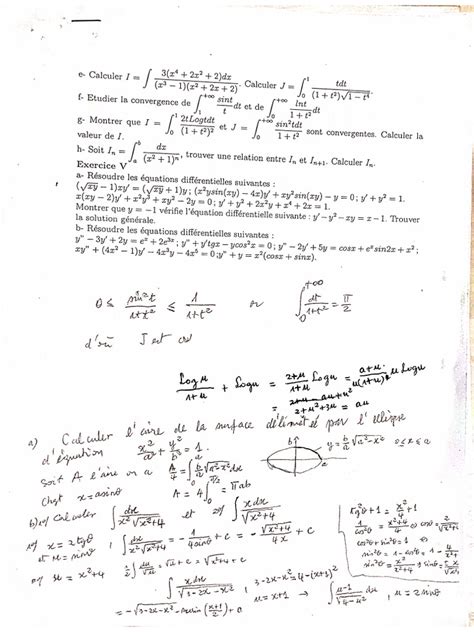 e- Calculer I = ∫ 3(x⁴ + 2x² + 2)dx / (x³ − 1)(x² + 2x + 2). Calculer J = ∫₀¹ tdt / (1 + t²)√1 − t⁴.
f- Etudier la convergence de ∫₁^+∞ sint/t dt et de ∫₀^+∞ lnt/1 + t² dt
g- Montrer que I = ∫₀¹ 2tLogtdt/(1 + t²)² et J = ∫₀^+∞ sin²tdt/1 + t² sont convergentes. Calculer la
valeur de I.
h- Soit Iₙ = ∫ dx/(x² + 1)ⁿ, trouver une relation entre Iₙ et Iₙ₊₁. Calculer Iₙ.
Exercice V
a- Résoudre les équations différentielles suivantes :
(√xy − 1)xy' = (√xy + 1)y; (x²ysin(xy) − 4x)y' + xy²sin(xy) − y = 0; y' + y² = 1.
x(xy − 2)y' + x²y³ + xy² − 2y = 0; y' + y² + 2x²y + x⁴ + 2x = 1.
Montrer que y = −1 vérifie l'équation différentielle suivante : y' − y² − xy = x − 1. Trouver
la solution générale.
b- Résoudre les équations différentielles suivantes :
y" − 3y' + 2y = eˣ + 2e³ˣ; y" + y'tgx − ycos²x = 0; y" − 2y' + 5y = cosx + eˣsin2x + x²;
xy" + (4x² − 1)y' − 4x³y − 4x⁵ = 0; y" + y = x²(cosx + sinx).
0 ≤ sin²t/1+t² ≤ 1/1+t² or ∫₀^+∞ dt/1+t² = π/2
d'où J est
Log u/1+u + Log u = 2+u/1+u Log u
a) Calculer l'aire de la surface délimitée par l'ellipse
d'équation x²/a² + y²/b² = 1.
y = b/a √a²−x² 0 ≤ x ≤ a
soit A l'aire on a A/4 = ∫ b/a √a²−x² dx
Chgt x = a sinθ A = 4 ∫ = πab
b) Calculer ∫ dx/x²√x²+4 et ∫ xdx/√x²+4
x = 2tgθ
et u = sinθ, ∫ dx/x²√x²+4 = −1/4sinθ + C = −√x²+4/4x + C
u = x²+4 ½∫ du/√u = √u + C = √x²+4 + C
∫ xdx/√3−2x−x², 3−2x−x² = 4−(x+1)²
u = x+1 → ∫ u−1/√4−u² du, u = 2 sinθ
= −√3−2x−x² − arcsin(x+1/2) + C
tg²θ + 1 = x²/4 + 1
1/cos²θ = x²+4/4
cos²θ + sin²θ = 1
sin²θ = 1 − cos²θ = 1 − 4/x²+4
sin²θ = x²/x²+4